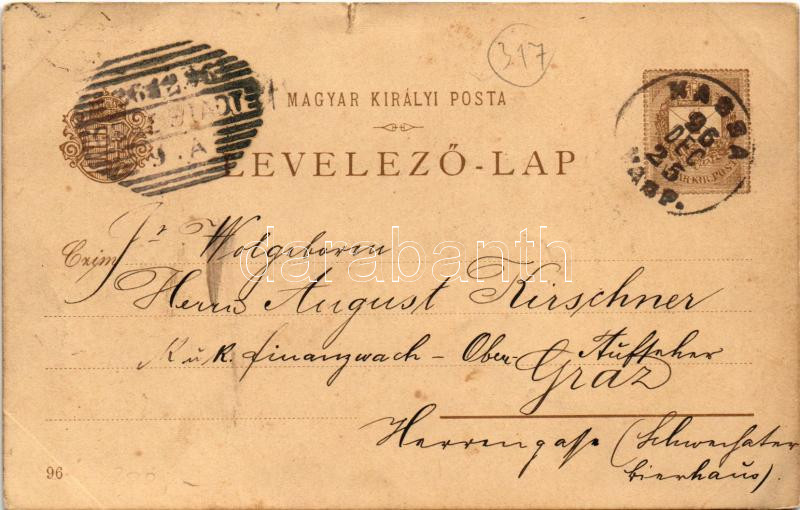 317
26.12.96
9.A
MAGYAR KIRÁLYI POSTA
LEVELEZŐ-LAP
KASSA
96
DEC
25
Czim
Sr Wolgeborn
Herrn August Kirschner
K u k. finanzwach – Ober-Aufseher
Graz
Herrengasse (Schwechater
bierhaus).
darabanth
96